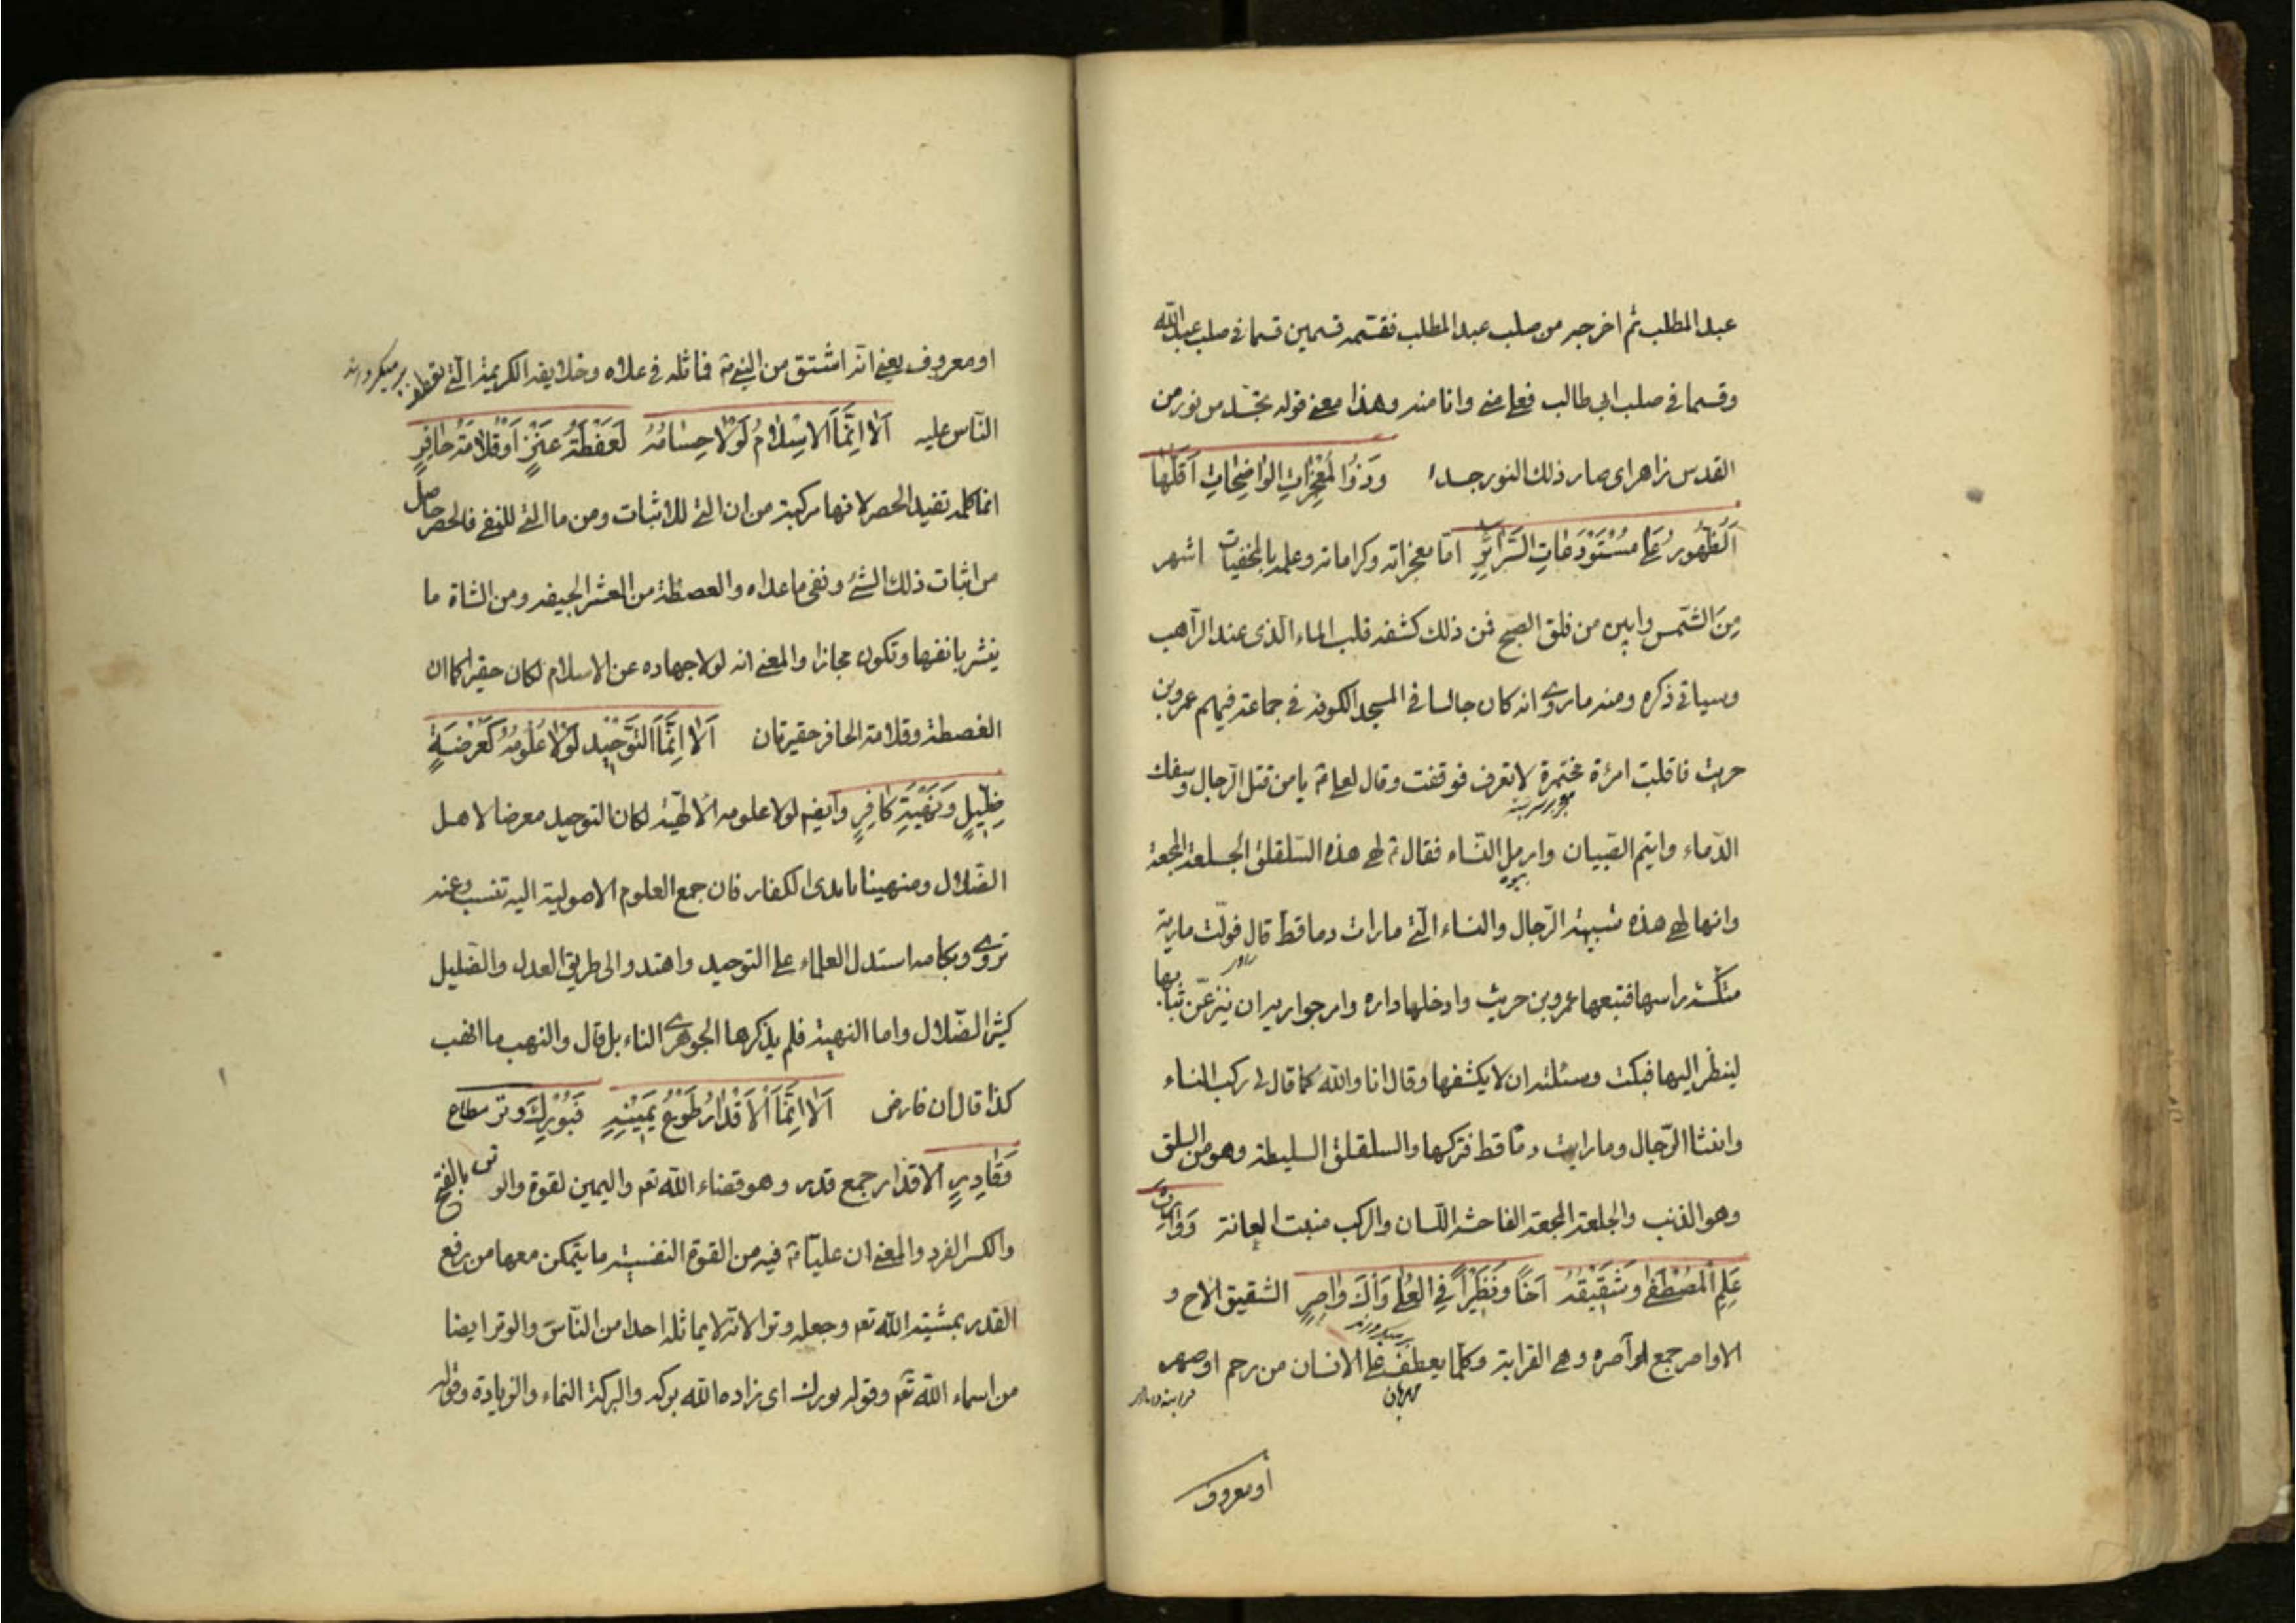 عبد المطلب ثم اخرجه من صلب عبد المطلب فقسمه قسمين قسما في صلب عبد الله
وقسما في صلب ابي طالب فعلي مني وانا منه وهذا معنى قوله تجسد من نور من
القدس زاهر اى صار ذلك النور جسدا وَذُو المُعْجِزاتِ الوٰاضِحاتِ اَقَلُّها
اَلظُّهُورُ عَلىٰ مُسْتَوْدَعٰاتِ السَّرٰائِرِ امّا معجزاته وكراماته وعلمه بالمخفيات اشهر
مِنَ الشّمس وابين من فلق الصبح فمن ذلك كشفه قليب الماء الّذى عند الرّاهب
وسياتي ذكره ومنه ما روى انه كان جالسا في المسجد الكوفة في جماعة فيهم عمرو بن
حريث فاقبلت امرئة مختمرة لا تعرف فوقفت وقال لعلي ۴ يا من قتل الرّجال وسفك
الدّماء وايتم الصّبيان وارمل النّساء فقال ۴ لهى هذه السّلقلق الجلعة المجعة
بيوه
وانها لهى هذه شبيهة الرّجال والنساء الّتى ما رات دما قط قال فولّت مارية
منكّسة راسها فتبعها عمرو بن حريث وادخلها داره وامر جواريه ان ينزعن ثيابها
لينظر اليها فبكت وسئلته ان لا يكشفها وقال انا والله كما قال لى ركب النساء
وانثيا الرّجال وما رايت دمّا قط فتركها والسلقلق السليطة وهو من السلق
وهو الذئب والجلعة المجعة الفاحشة اللّسان والركب منبت العانة وَوٰارِثُ
عِلمِ الْمُصْطَفىٰ وَشَقِيْقُهُ اَخًا وَنَظِيْراً فِي العُلىٰ وَالْاَوٰاصِرِ الشقيق الاخ و
الاواصر جمع آصره وهى القرابة وكلّما يعطف على الانسان من رحم او صهر
مهربان
او معروف
او معروف يعنى انّه اشتق من النبي ۴ فماثله في علاه وخلايقه الكريمة الّتى تعطف
النّاس عليه اَلاٰ اِنَّمَا الاِسْلاٰمُ لَوْلاٰ حِسٰامُهُ لَعَفْطَةُ عَنْزٍ اَوْ قُلاٰمَةُ حٰافِرٍ
انما كلمه تفيد الحصر لانها مركبة من ان التى للاثبات ومن ما التى للنفى فالحصر حاصل
من اثبات ذلك الشئ ونفى ما عداه والعصطة من العنز الجيفه ومن الشاة ما
ينثر بانفها وتكون مجازا والمعنى انه لولا جهاده عن الاسلام لكان حقيرا كما ان
العفطة وقلامة الحافر حقيرتان اَلاٰ اِنَّمَا التَّوْحِيْدُ لَوْلاٰ عُلُومُهُ كَعَرْضَةِ
ضِلِّيْلٍ وَنَهْبَةِ كٰافِرٍ وايضا لولا علومه الالٰهيّة لكان التوحيد معرضا لاهل
الضّلال ومنهبا بايدى الكفار فان جمع العلوم الاصولية اليه تنسب وعنه
تروى وبكلامه استدل العلماء على التوحيد واهتدوا الى طريق العدل والضليل
كثير الضّلال واما النهبة فلم يذكرها الجوهرى التاء بل قال والنهب ما انهب
كذا قال ابن فارض اَلاٰ اِنَّمَا اَلْاَقْدٰارُ طَوْعُ يَمِيْنِهِ فَبُوْرِكَ وتر مطاع
وَقٰادِرٍ الاقدار جمع قدر وهو قضاء الله تعه واليمين لقوة والوتر بالفتح
والكسر الفرد والمعنى ان عليّا ۴ فيه من القوة النفسية ما يتمكن معها من رفع
القدر بمشية الله تعه وجعله وترا لانه لا يماثله احدا من النّاس والوتر ايضا
من اسماء الله تعه وقوله بورك اى زاده الله بركة والبركة النماء والزيادة وقوله